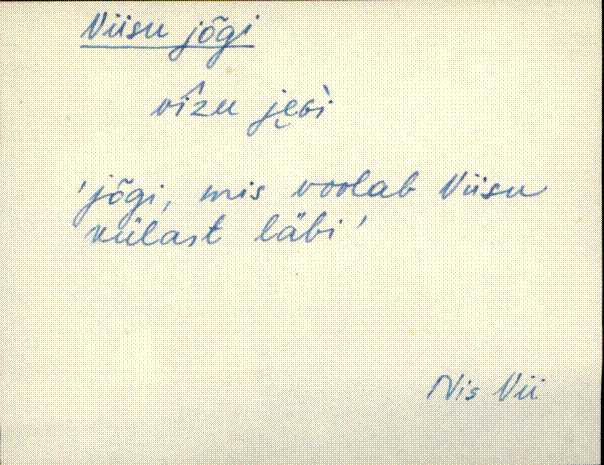 Viisu jõgi
vîzu je̮ɢì
'jõgi, mis voolab Viisu
külast läbi'
Nis Vii